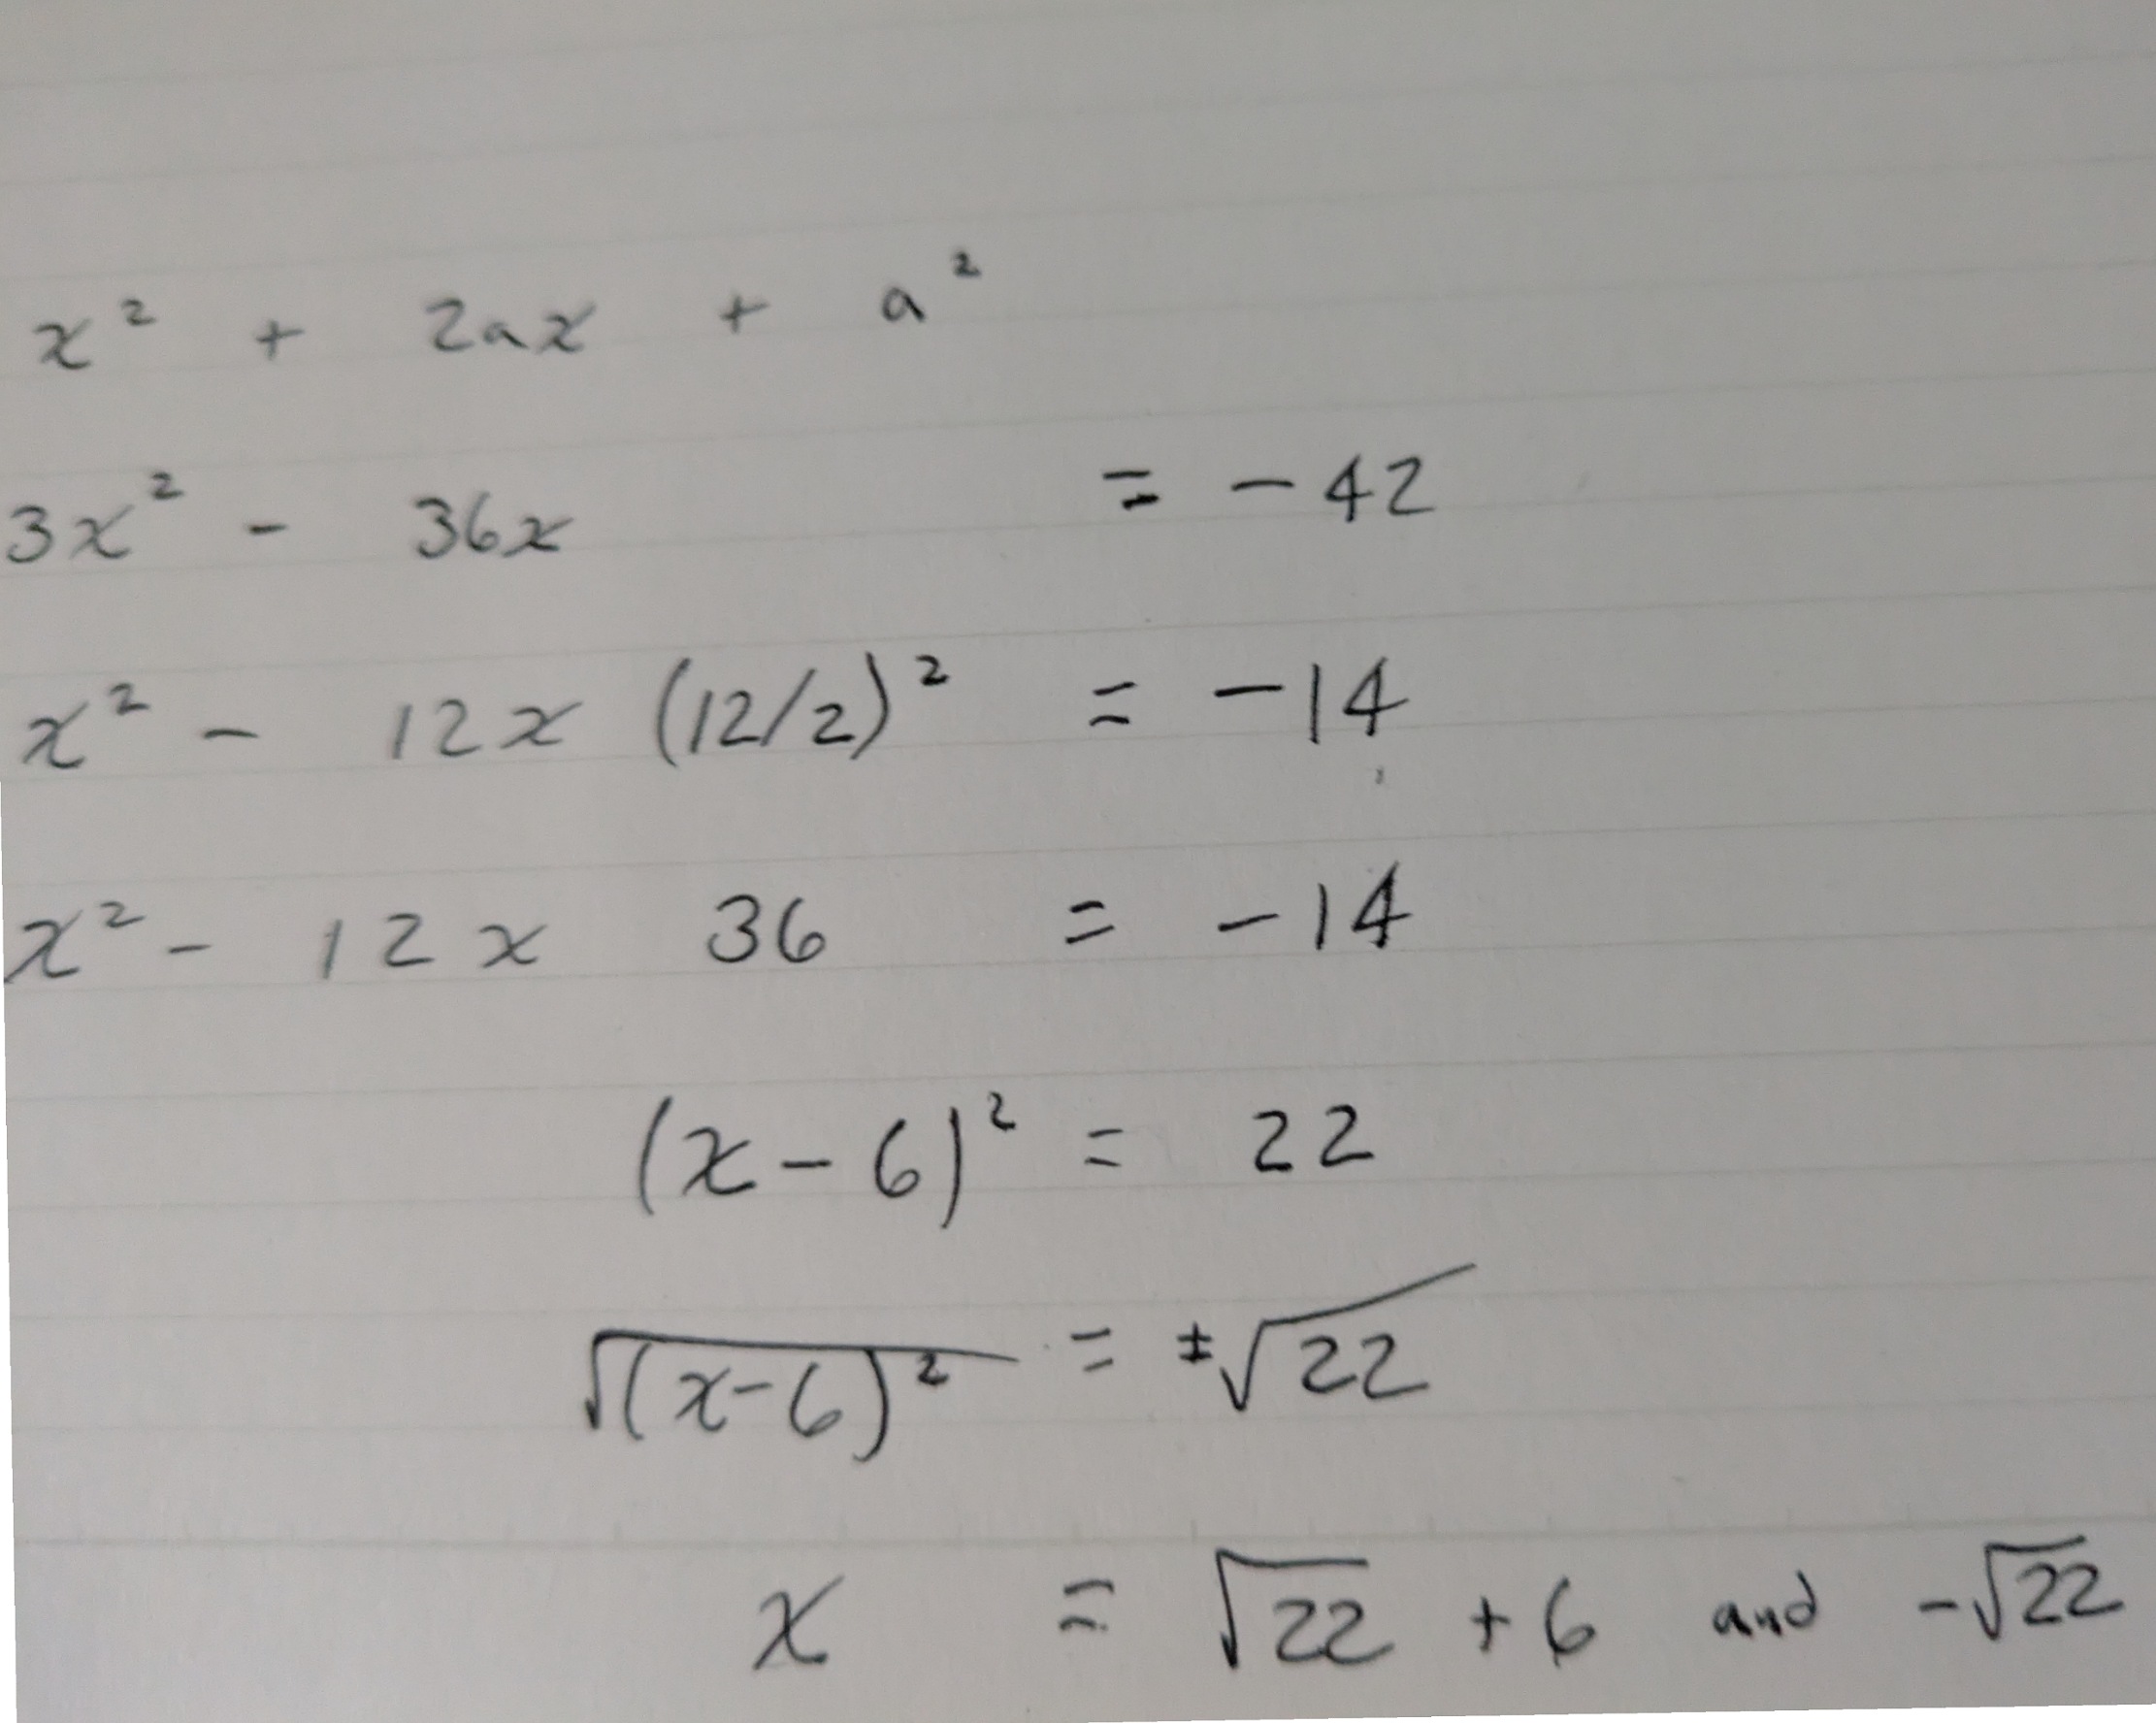 x² + 2ax + a²
3x² - 36x = -42
x² - 12x (12/2)² = -14
x² - 12x 36 = -14
(x-6)² = 22
√(x-6)² = ±√22
x = √22 + 6 and -√22